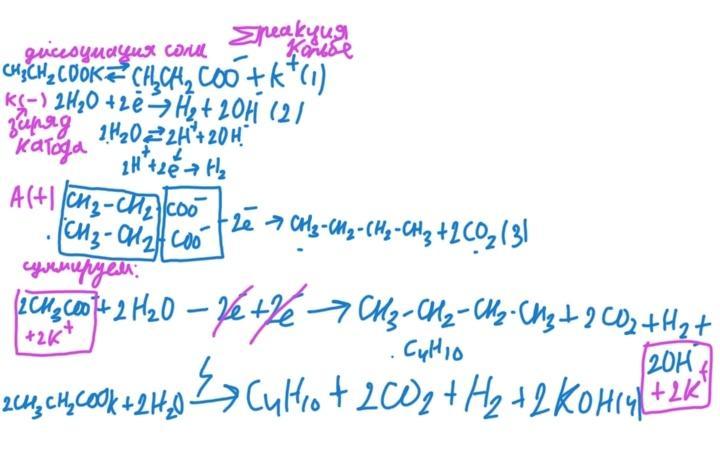 Σреакция
Кольбе
диссоциация соли
CH₃CH₂COOK⇄CH₃CH₂COO⁻+K⁺(1)
K(-) 2H₂O+2ē→H₂+2OH⁻(2)
заряд
катода
2H₂O⇄2H⁺+2OH⁻
2H⁺+2ē→H₂
A(+) CH₃-CH₂ COO⁻
CH₃-CH₂ COO⁻ -2ē→CH₃-CH₂-CH₂-CH₃+2CO₂(3)
суммируем:
2CH₃COO⁻+2H₂O-2ē+2ē→CH₃-CH₂-CH₂-CH₃+2CO₂+H₂+
+2K⁺
C₄H₁₀
2OH⁻
+2K⁺
2CH₃CH₂COOK+2H₂O→C₄H₁₀+2CO₂+H₂+2KOH(4)